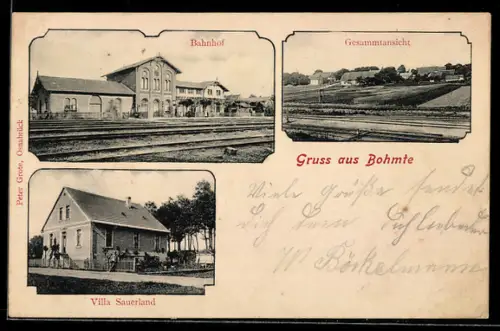 Bahnhof
Gesammtansicht
Peter Grote, Osnabrück
Gruss aus Bohmte
Viele Grüße sendet
Dich
W Böckelmann
Villa Sauerland